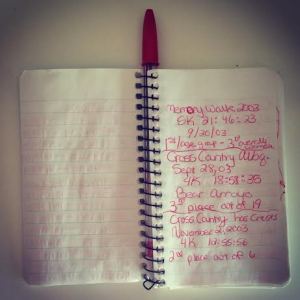 Memory Walk 2003
5K 21:46:23
9/20/03
1st/age group - 3rd overall
Cross Country Albq.
Sept 28, 03
4K 18:58:35
Bear Arroyo
3rd place out of 19
Cross Country Las Cruces
November 2, 2003
4K
2nd place out of 6